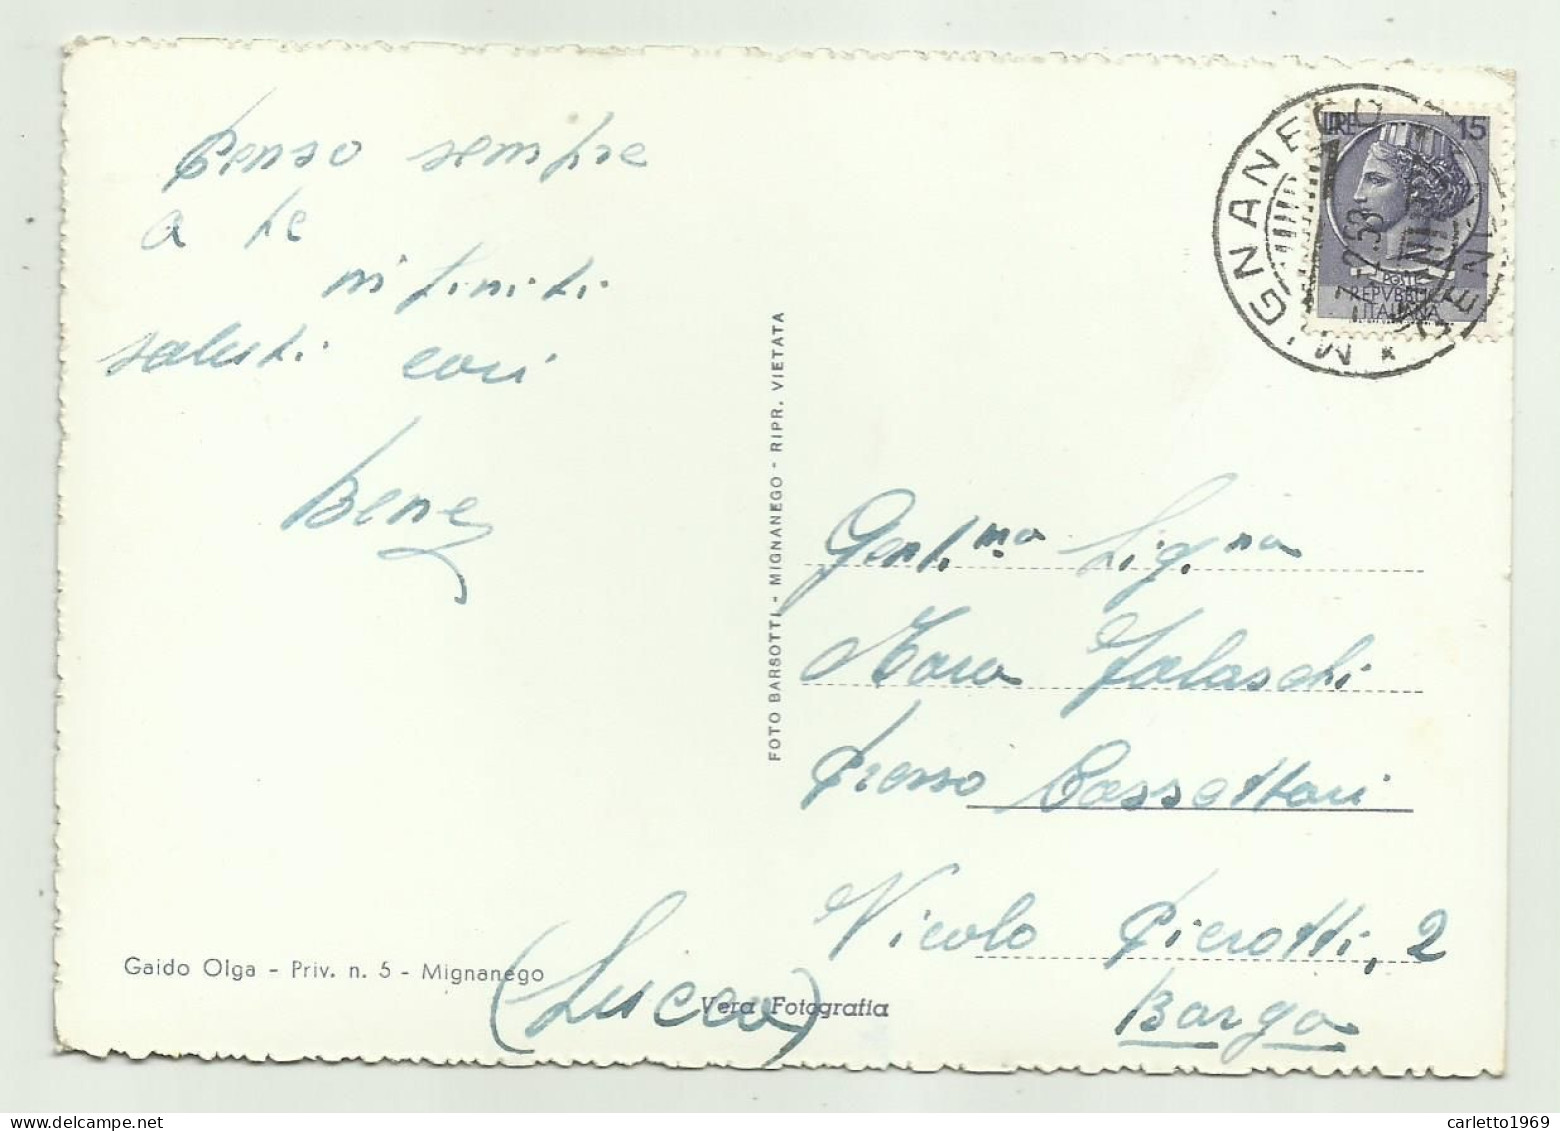 Penso sempre
a te
infiniti
saluti cari
Bene
Gaido Olga - Priv. n. 5 - Mignanego
FOTO BARSOTTI - MIGNANEGO - RIPR. VIETATA
Vera Fotografia
MIGNANEGO * GENOVA
LIRE 15
POSTE
REPVBBLICA
ITALIANA
Gent.ma Sig.na
Mara Falaschi
presso Cassettari
Vicolo Pierotti, 2
Barga
(Lucca)
carletto1969